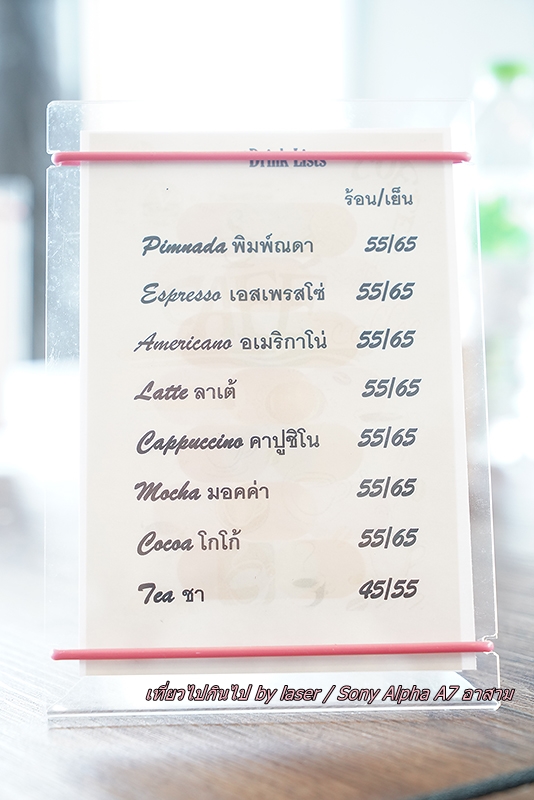 Drink Lists
ร้อน/เย็น
Pimnada พิมพ์ณดา 55/65
Espresso เอสเพรสโซ่ 55/65
Americano อเมริกาโน่ 55/65
Latte ลาเต้ 55/65
Cappuccino คาปูชิโน 55/65
Mocha มอคค่า 55/65
Cocoa โกโก้ 55/65
Tea ชา 45/55
เที่ยวไปกินไป by laser / Sony Alpha A7 อาสาม